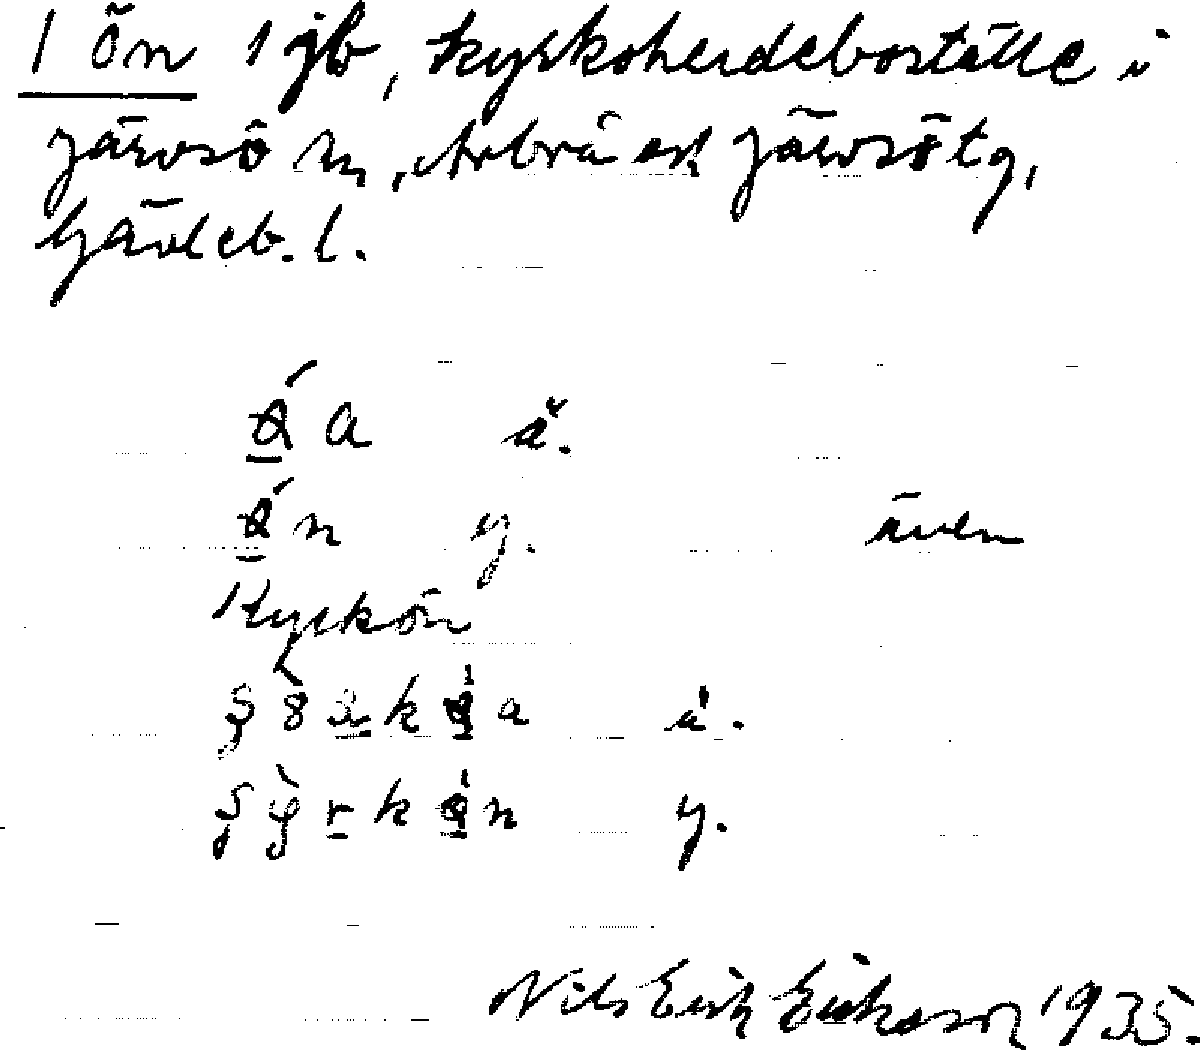 1 Ön 1 jb, kyrkoherdeboställe i
Järvsö sn, Arbrå och Järvsö tg,
Gävleb. l.
ä.
y. även
Kyrkön
ä.
y.
Nils Erik Eriksson 1935.